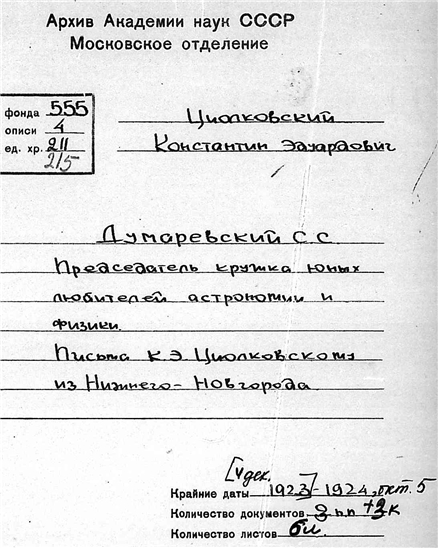 Архив Академии наук СССР
Московское отделение
фонда 555
описи 4
ед. хр. 211
215
Циолковский
Константин Эдуардович
Думаревский С.С.
Председатель кружка юных
любителей астрономии и
физики
Письма К.Э. Циолковскому
из Нижнего-Новгорода
[4 дек.
Крайние даты 1923]-1924, окт. 5
Количество документов 3 п.п +3к
Количество листов 6л